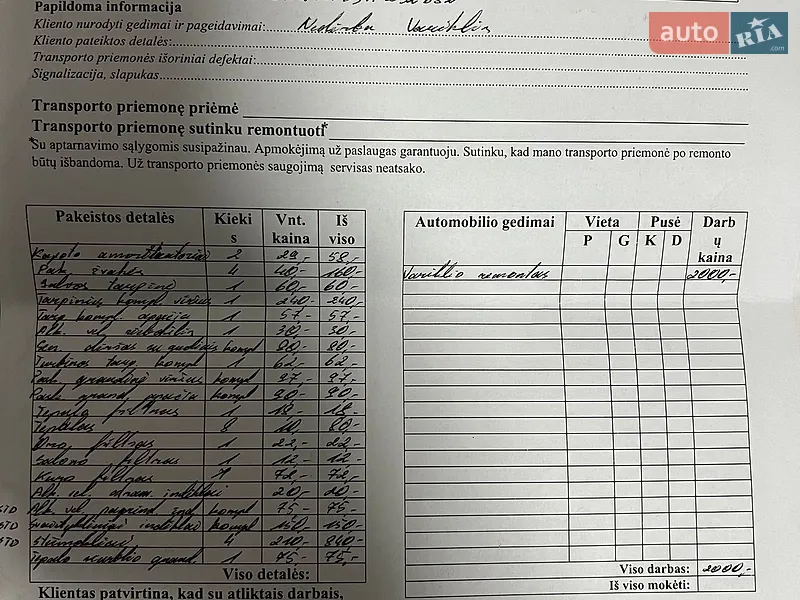 Papildoma informacija
Kliento nurodyti gedimai ir pageidavimai: Nedirba Variklis
Kliento pateiktos detalės:
Transporto priemonės išoriniai defektai:
Signalizacija, slapukas
auto RIA .com
Transporto priemonę priėmė
Transporto priemonę sutinku remontuoti*
*Su aptarnavimo sąlygomis susipažinau. Apmokėjimą už paslaugas garantuoju. Sutinku, kad mano transporto priemonė po remonto
būtų išbandoma. Už transporto priemonės saugojimą servisas neatsako.
Pakeistos detalės Kiekis Vnt. kaina Iš viso
Kapoto amortizatoriai 2 29,- 58,-
Pak. žvakės 4 40,- 160,-
Galvos tarpinė 1 60,- 60,-
Tarpinių kompl. viršus 1 240,- 240,-
Tarp. kompl. apačia 1 57,- 57,-
Alk. vel. 1 30,- 30,-
Gen. diržas su kompl 80,- 80,-
Turbinos tarp. kompl 1 62,- 62,-
Pask. grandinė viršus kompl 97,- 97,-
Pask. grand. apačia kompl 90,- 90,-
Tepalo filtras 1 18,- 18,-
Tepalas 8 10,- 80,-
Oro filtras 1 22,- 22,-
Salono filtras 1 12,- 12,-
Kuro filtras 1 72,- 72,-
Alk. įdėklai 20,- 20,-
Alk. vel. kompl 75,- 75,-
įdėklai kompl 150,- 150,-
Stūmokliai 4 210,- 840,-
Tepalo siurblio grand. 1 75,- 75,-
Viso detalės:
Klientas patvirtina, kad su atliktais darbais,
Automobilio gedimai Vieta Pusė Darbų kaina
P G K D
Variklio remontas 2000,-
Viso darbas: 2000,-
Iš viso mokėti: